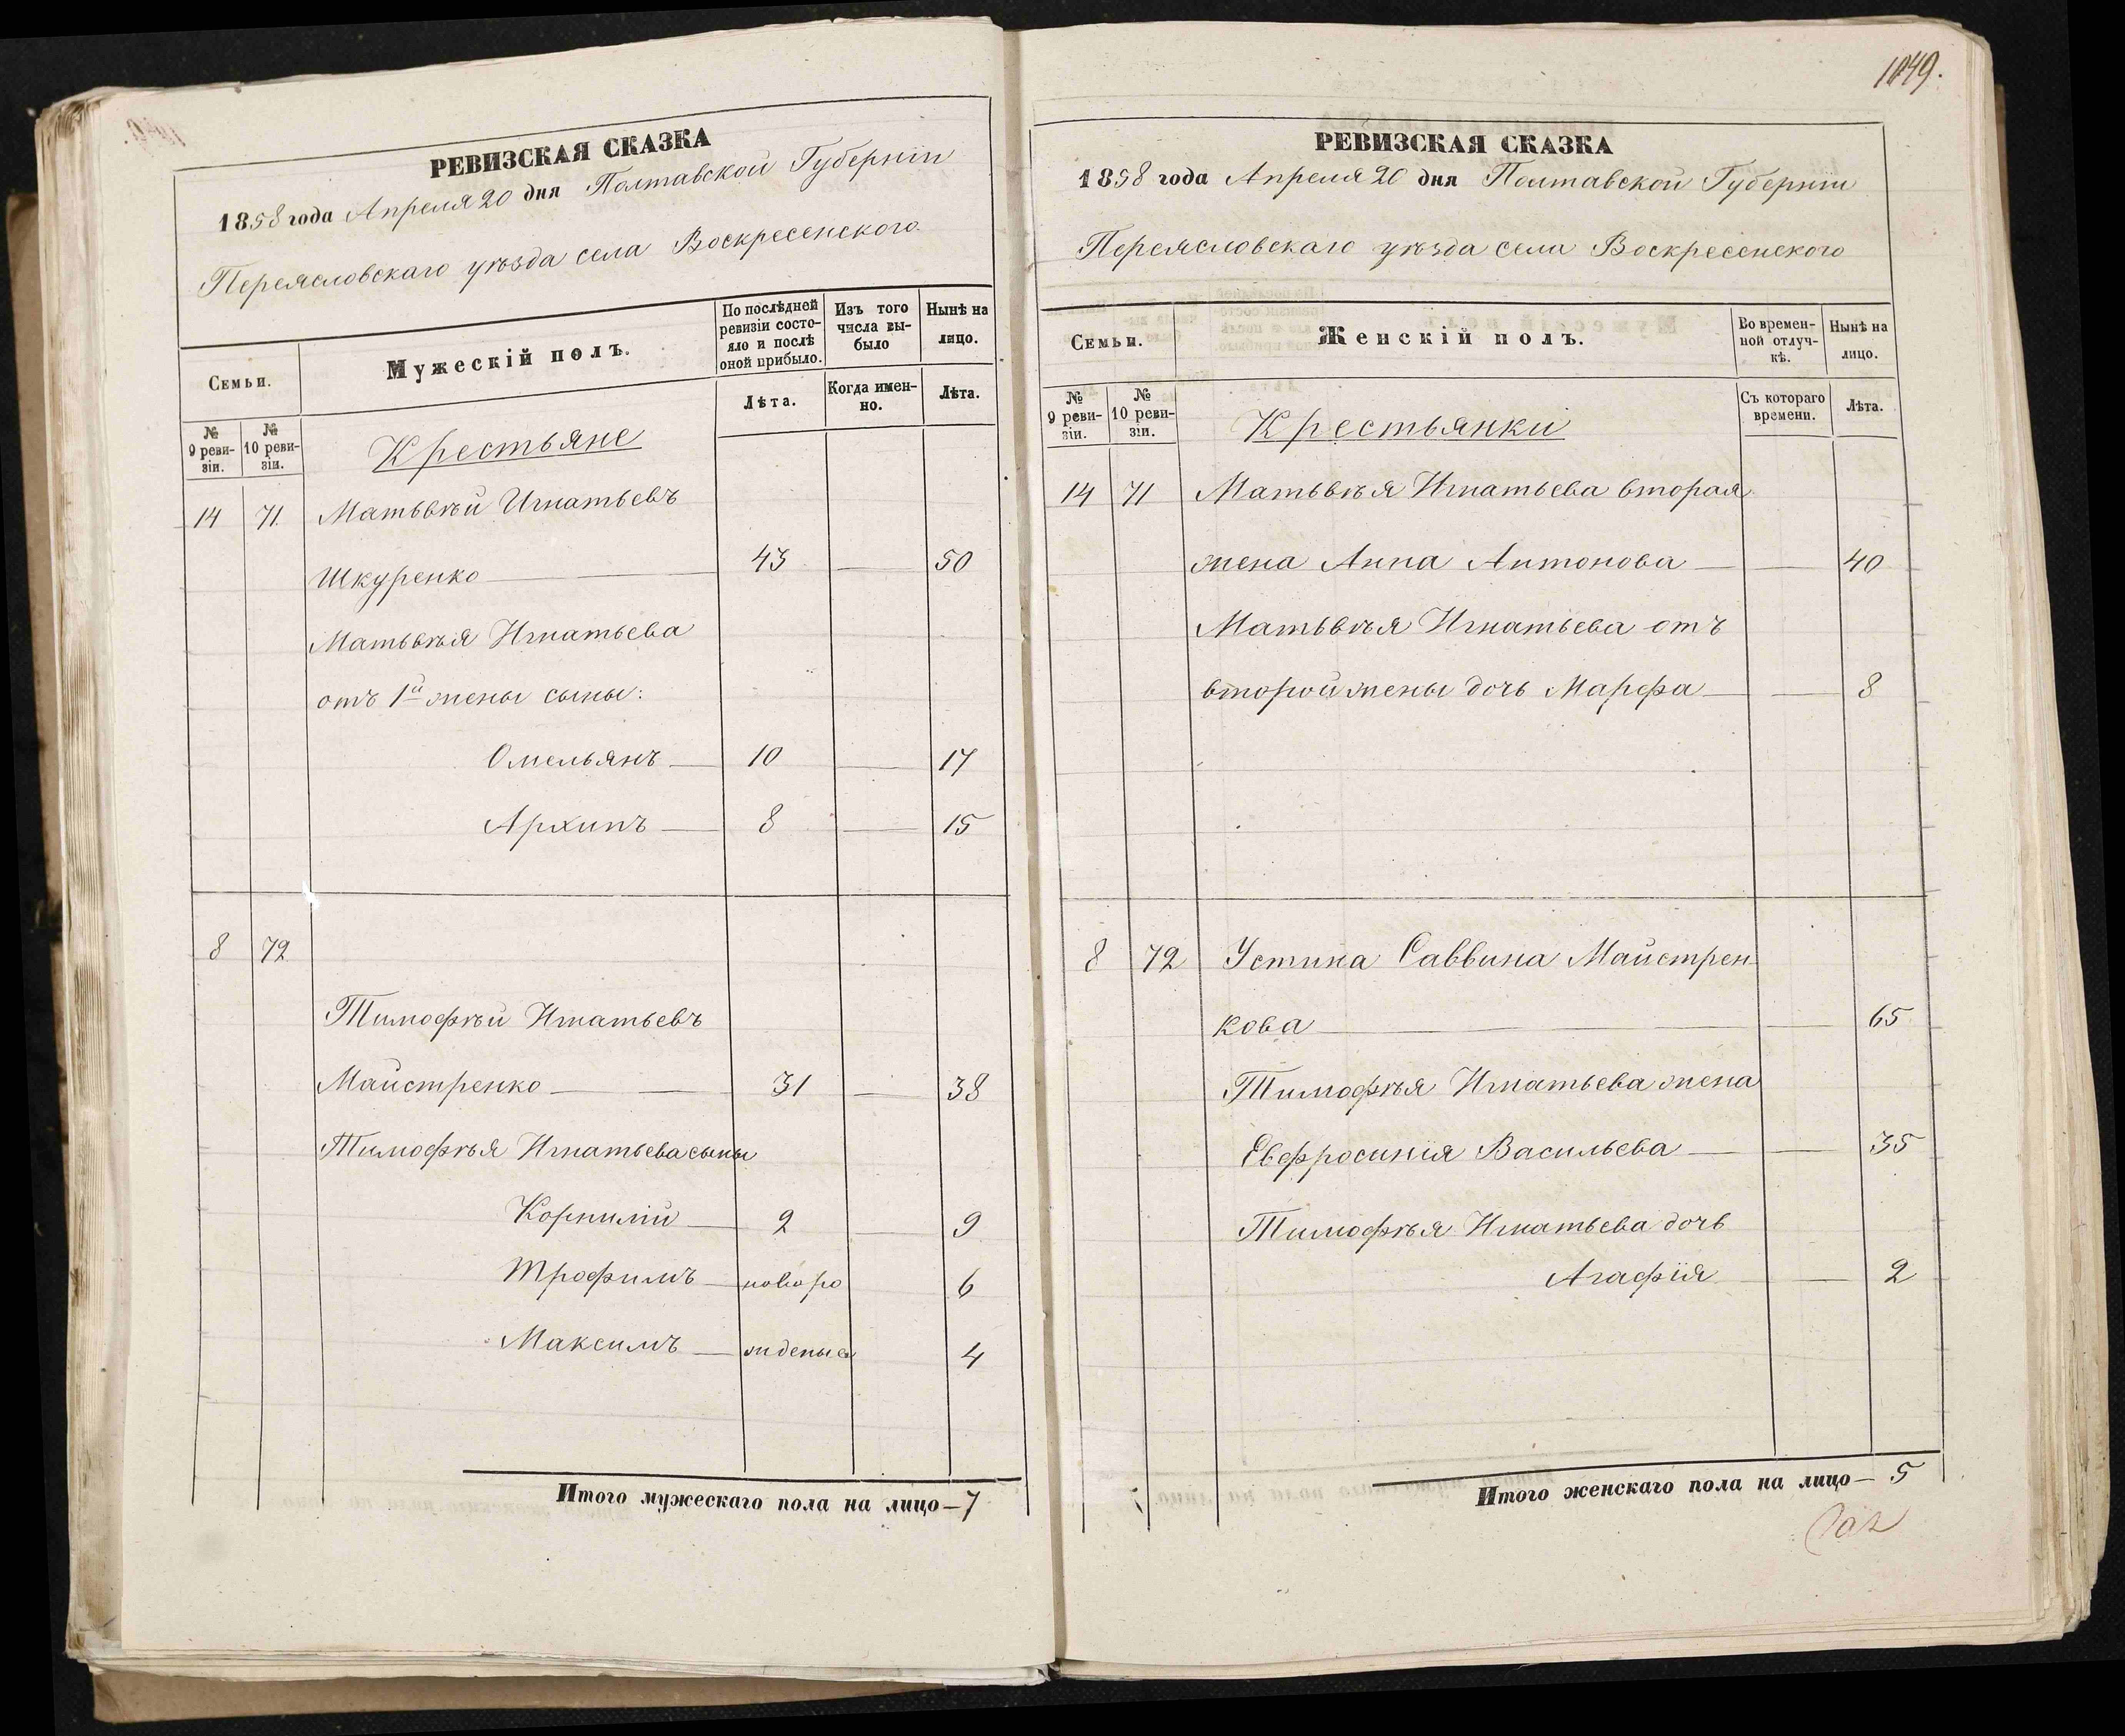 РЕВИЗСКАЯ СКАЗКА
1858 года Апреля 20 дня Полтавской Губерніи
Переясловскаго уѣзда села Воскресенского
Семьи.
Мужескій полъ.
По послѣдней ревизіи состояло и послѣ оной прибыло.
Изъ того числа выбыло
Нынѣ на лицо.
№ 9 ревизіи.
№ 10 ревизіи.
Лѣта.
Когда именно.
Лѣта.
Крестьяне
14 71 Матьвѣй Игнатьевъ
Шкуренко — 43 — 50
Матьвѣя Игнатьева
отъ 1й жены сыны:
Омельянъ — 10 — 17
Архипъ — 8 — 15
8 72
Тимофѣй Игнатьевъ
Майстренко — 31 — 38
Тимофѣя Игнатьева сыны
Корнилій — 2 — 9
Трофимъ — новоро 6
Максимъ — жденые 4
Итого мужескаго пола на лицо — 7
1049.
РЕВИЗСКАЯ СКАЗКА
1858 года Апреля 20 дня Полтавской Губерніи
Переясловскаго уѣзда села Воскресенского
Семьи.
Женскій полъ.
Во временной отлучкѣ.
Нынѣ на лицо.
№ 9 ревизіи.
№ 10 ревизіи.
Съ котораго времени.
Лѣта.
Крестьянки
14 71 Матьвѣя Игнатьева вторая
жена Анна Антонова — — 40
Матьвѣя Игнатьева отъ
второй жены дочь Марфа — — 8
8 72 Устина Саввина Майстрен
кова — — 65
Тимофѣя Игнатьева жена
Евфросинія Васильева — — 35
Тимофѣя Игнатьева дочь
Агафія — — 2
Итого женскаго пола на лицо — 5